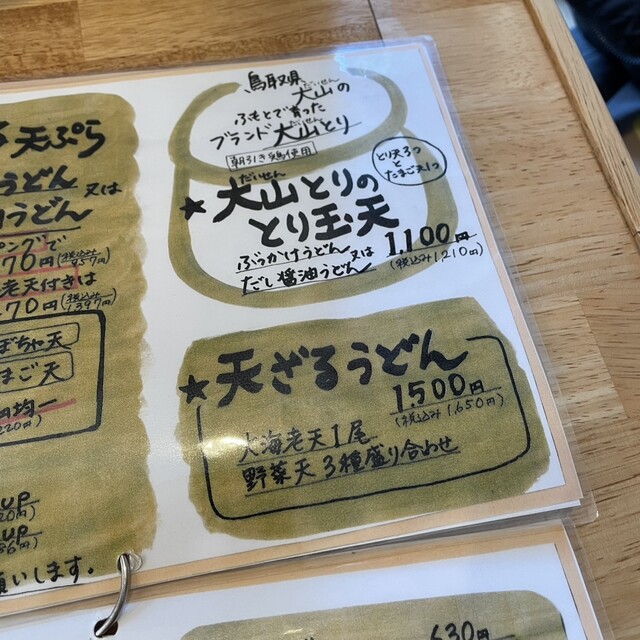 天ぷら
うどん 又は
うどん
70円
老天付きは
.70円
ぼちゃ天
まご天
均一
UP
UP
願いします。
鳥取県 大山の
だいせん
ふもとで育った
ブランド大山どり
だいせん
朝引き鶏使用
とり天3つ
と
たまご天1つ
だいせん
★大山どりの
とり玉天
ぶっかけうどん又は
だし醤油うどん
1,100円
(税込み1,210円)
★天ざるうどん
1500円
(税込み1,650円)
大海老天1尾
野菜天3種盛り合わせ
630円